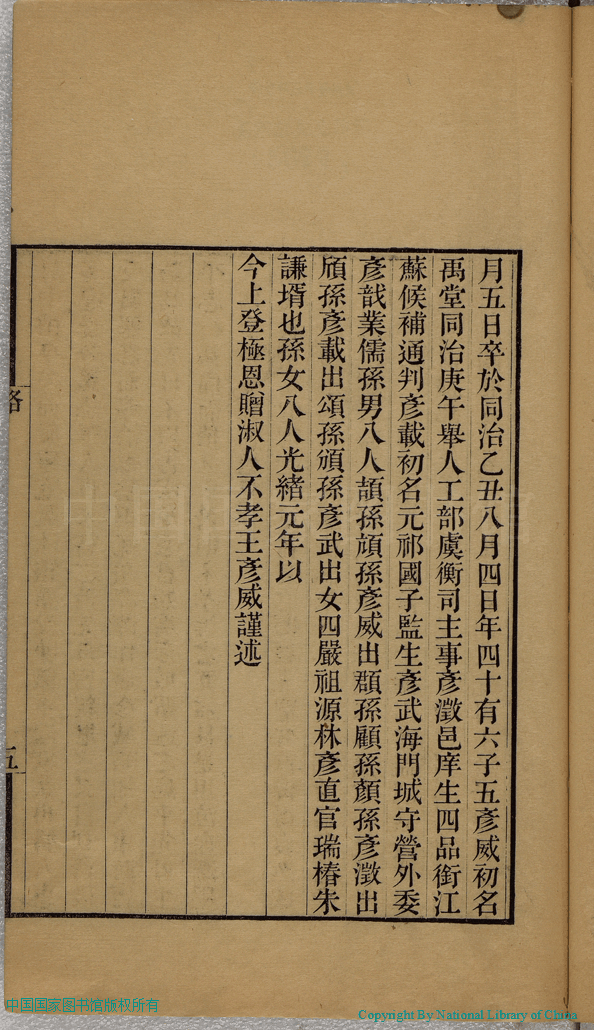 月五日卒於同治乙丑八月四日年四十有六子五彥威初名
禹堂同治庚午舉人工部虞衡司主事彥澂邑庠生四品銜江
蘇候補通判彥載初名元祁國子監生彥武海門城守營外委
彥戠業儒孫男八人頡孫頎孫彥威出頵孫顧孫顏孫彥澂出
頎孫彥載出頌孫頒孫彥武出女四嚴祖源林彥直官瑞椿朱
謙壻也孫女八人光緒元年以
今上登極恩贈淑人不孝王彥威謹述
五
中国国家图书馆版权所有
Copyright By National Library of China